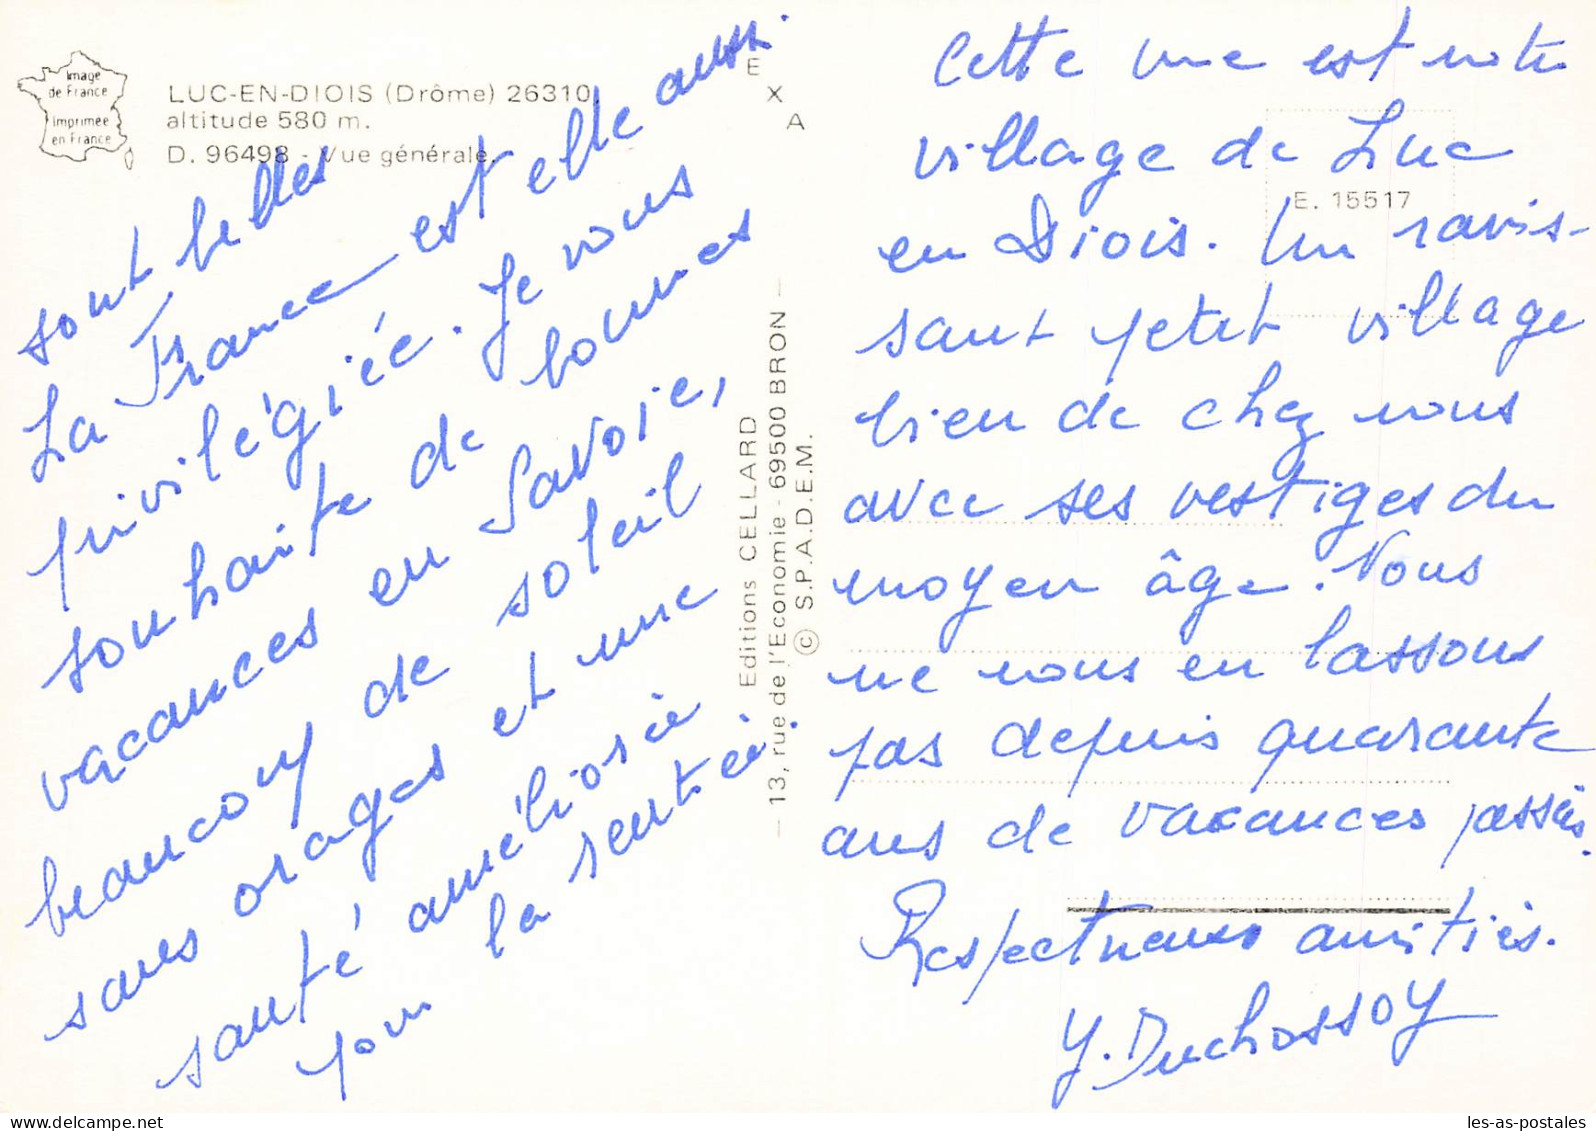 Image
de France
imprimée
en France
LUC-EN-DIOIS (Drôme) 26310.
altitude 580 m.
D. 96498 - Vue générale.
sont belles
La France est elle aussi
privilégiée. Je vous
souhaite de bonnes
vacances en Savoie,
beaucoup de soleil
sans orages et une
santé améliorée
pour la rentrée.
E
X
A
Editions CELLARD
— 13, rue de l'Economie - 69500 BRON —
© S.P.A.D.E.M.
E. 15517
Cette vue est notre
village de Luc
en Diois. Un ravis-
sant petit village
bien de chez nous
avec ses vestiges du
moyen âge. Nous
ne nous en lassons
pas depuis quarante
ans de vacances passées.
Respectueuses amitiés.
Y. Duchossoy
les-as-postales